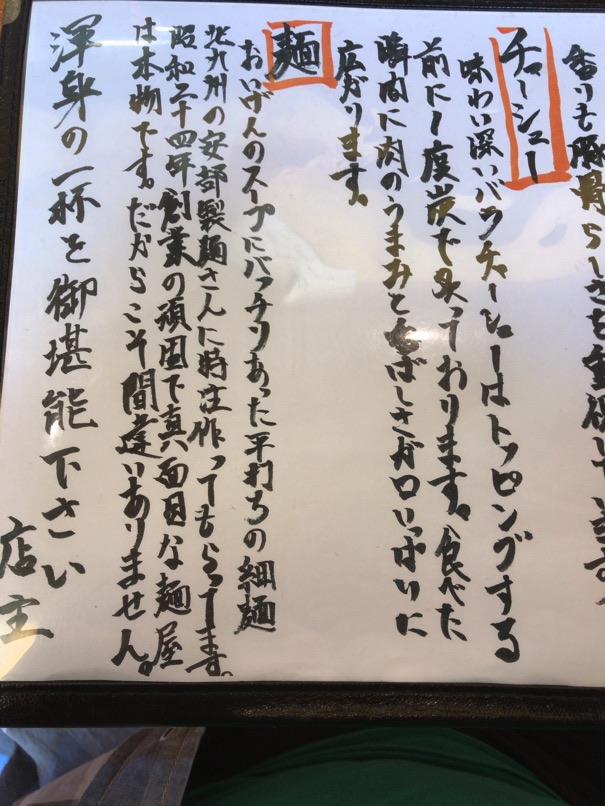 香りも豚骨らしさを重視しています。
チャーシュー
味わい深いバラチャーシューはトッピングする
前に1度炭で炙っております。食べた
瞬間に肉のうまみと香ばしさが口いっぱいに
広がります。
麺
おいげんのスープにバッチリあった平打ちの細麺
北九州の安部製麺さんに特注作ってもらってます。
昭和二十四年創業の頑固で真面目な麺屋
は本物です。だからこそ間違いありません。
渾身の一杯を御堪能下さい
店主